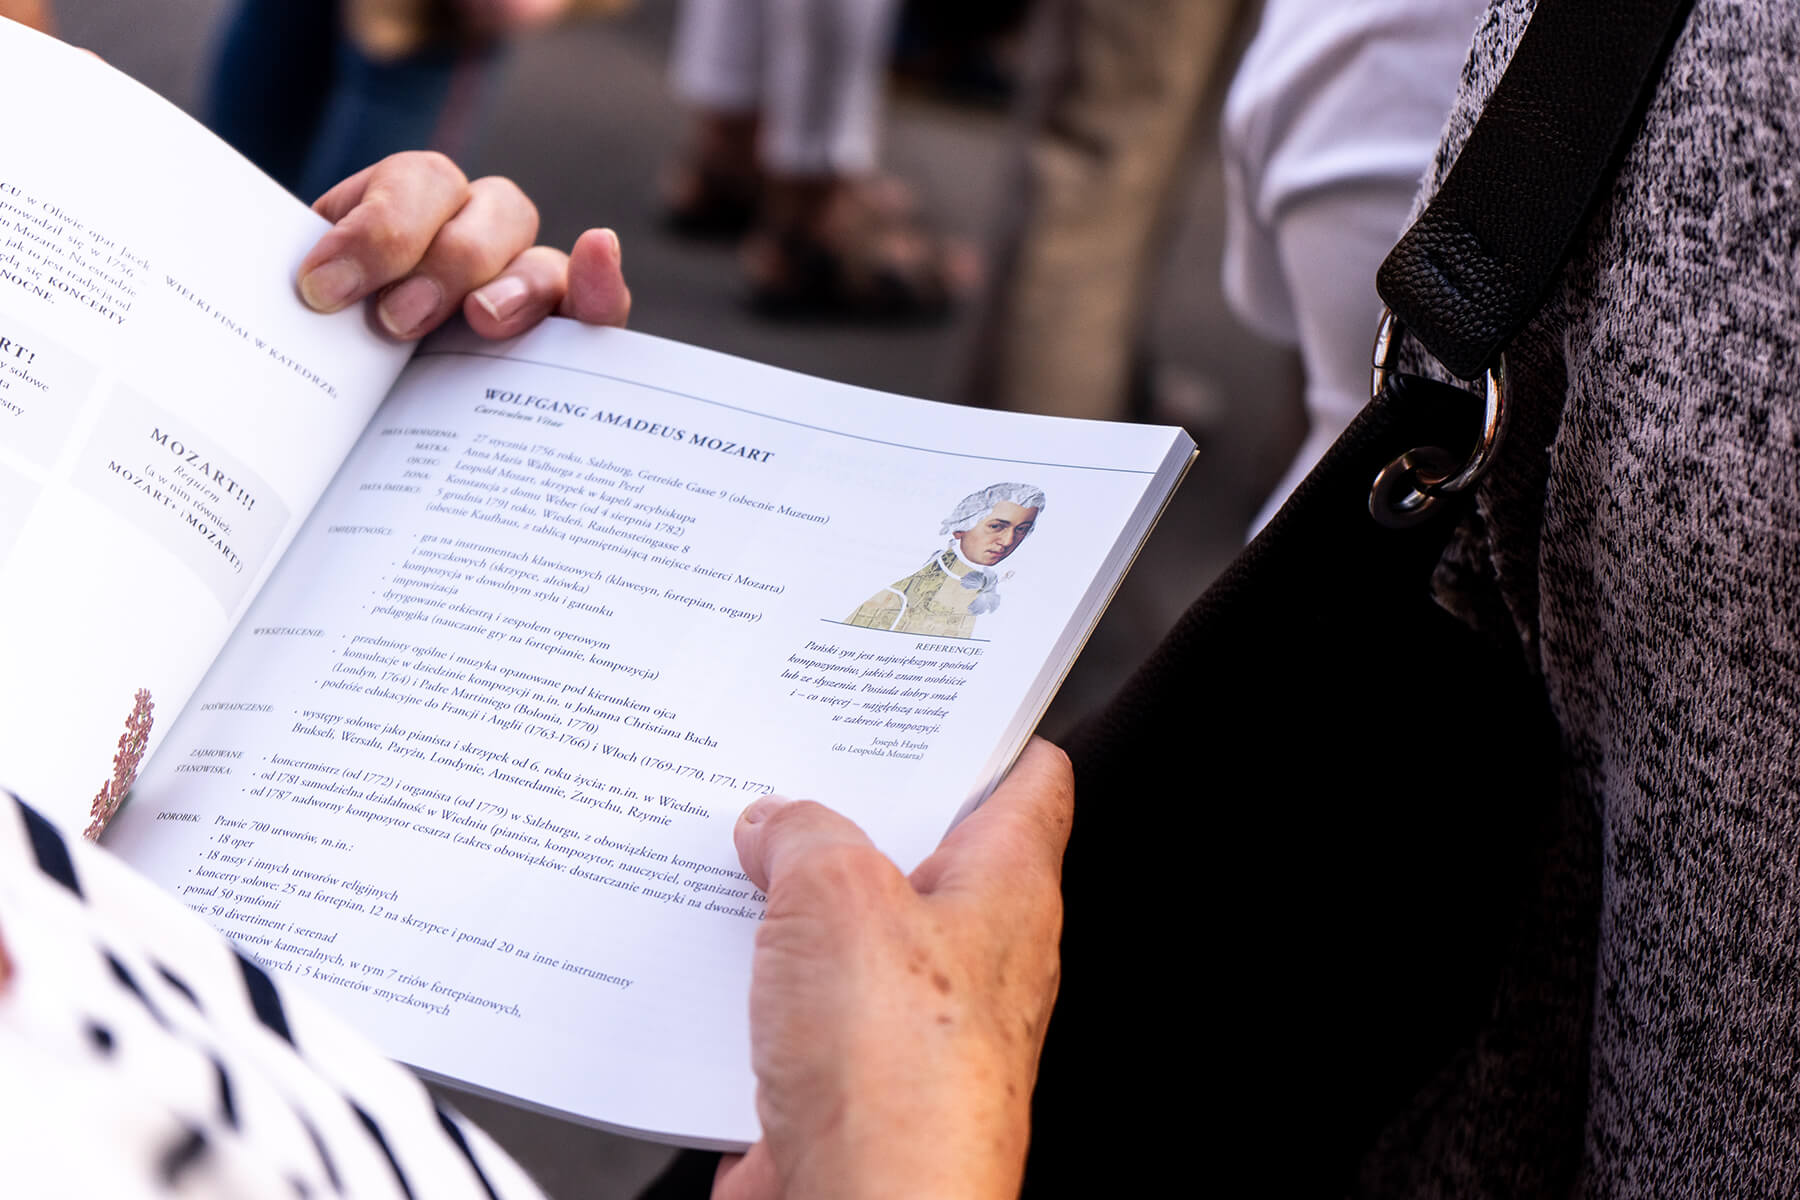 CU w Oliwie opat Jacek
prowadził się w 1756
Mozarta. Na estradzie
jak to jest tradycją od
dą się KONCERTY
NOCNE.
WIELKI FINAŁ W KATEDRZE,
RT!
y solowe
MOZART!!!
Requiem
(a w nim również:
MOZART+ i MOZART?)
WOLFGANG AMADEUS MOZART
Curriculum Vitae
DATA URODZENIA: 27 stycznia 1756 roku, Salzburg, Getreide Gasse 9 (obecnie Muzeum)
MATKA: Anna Maria Walburga z domu Pertl
OJCIEC: Leopold Mozart, skrzypek w kapeli arcybiskupa
ŻONA: Konstancja z domu Weber (od 4 sierpnia 1782)
DATA ŚMIERCI: 5 grudnia 1791 roku, Wiedeń, Rauhensteingasse 8
(obecnie Kaufhaus, z tablicą upamiętniającą miejsce śmierci Mozarta)
UMIEJĘTNOŚCI: · gra na instrumentach klawiszowych (klawesyn, fortepian, organy)
i smyczkowych (skrzypce, altówka)
· kompozycja w dowolnym stylu i gatunku
· improwizacja
· dyrygowanie orkiestrą i zespołem operowym
· pedagogika (nauczanie gry na fortepianie, kompozycja)
WYKSZTAŁCENIE: · przedmioty ogólne i muzyka opanowane pod kierunkiem ojca
· konsultacje w dziedzinie kompozycji m.in. u Johanna Christiana Bacha
(Londyn, 1764) i Padre Martiniego (Bolonia, 1770)
· podróże edukacyjne do Francji i Anglii (1763-1766) i Włoch (1769-1770, 1771, 1772)
DOŚWIADCZENIE: · występy solowe jako pianista i skrzypek od 6. roku życia; m.in. w Wiedniu,
Brukseli, Wersalu, Paryżu, Londynie, Amsterdamie, Zurychu, Rzymie
ZAJMOWANE STANOWISKA: · koncertmistrz (od 1772) i organista (od 1779) w Salzburgu, z obowiązkiem komponowan
· od 1781 samodzielna działalność w Wiedniu (pianista, kompozytor, nauczyciel, organizator ko
· od 1787 nadworny kompozytor cesarza (zakres obowiązków: dostarczanie muzyki na dworskie b
DOROBEK: Prawie 700 utworów, m.in.:
· 18 oper
· 18 mszy i innych utworów religijnych
· koncerty solowe: 25 na fortepian, 12 na skrzypce i ponad 20 na inne instrumenty
· ponad 50 symfonii
wie 50 divertiment i serenad
utworów kameralnych, w tym 7 triów fortepianowych,
kowych i 5 kwintetów smyczkowych
REFERENCJE:
Pański syn jest największym spośród
kompozytorów, jakich znam osobiście
lub ze słyszenia. Posiada dobry smak
i – co więcej – najgłębszą wiedzę
w zakresie kompozycji.
Joseph Haydn
(do Leopolda Mozarta)